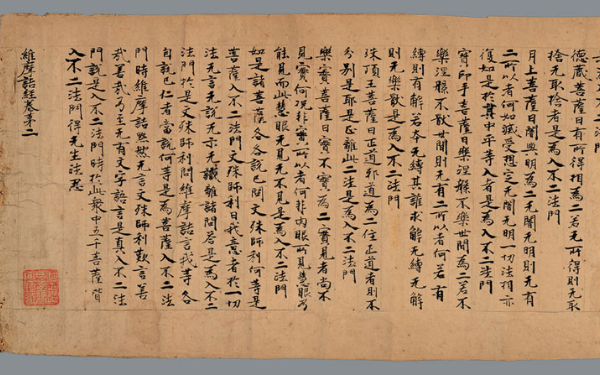 德藏菩薩曰有所得相為二若无所得則无取
捨无取捨者是為入不二法門
月上菩薩曰闇與明為二无闇无明則无有
二所以者何如滅受想定无闇无明一切法相亦
復如是於其中平等入者是為入不二法門
寶印手菩薩曰樂涅槃不樂世間為二若不
樂涅槃不猒世間則无有二所以者何若有
縛則有解若本无縛其誰求解无縛无解
則无樂猒是為入不二法門
珠頂王菩薩曰正道邪道為二住正道者則不
分別是耶是正離此二法是為入不二法門
樂實菩薩曰實不實為二實見者尚不
見實何況非實所以者何非肉眼所見慧眼乃
能見而此慧眼无見无不見是為入不二法門
如是諸菩薩各各說已問文殊師利何等是
菩薩入不二法門文殊師利曰我意者於一切
法无言无說无示无識離諸問答是為入不二
法門於是文殊師利問維摩詰言我等各
自說已仁者當說何等是為菩薩入不二法
門時維摩詰嘿然无言文殊師利歎言善
哉善哉乃至无有文字語言是真入不二法
門說是入不二法門時於此眾中五千菩薩皆
入不二法門得无生法忍
維摩詰經卷第二